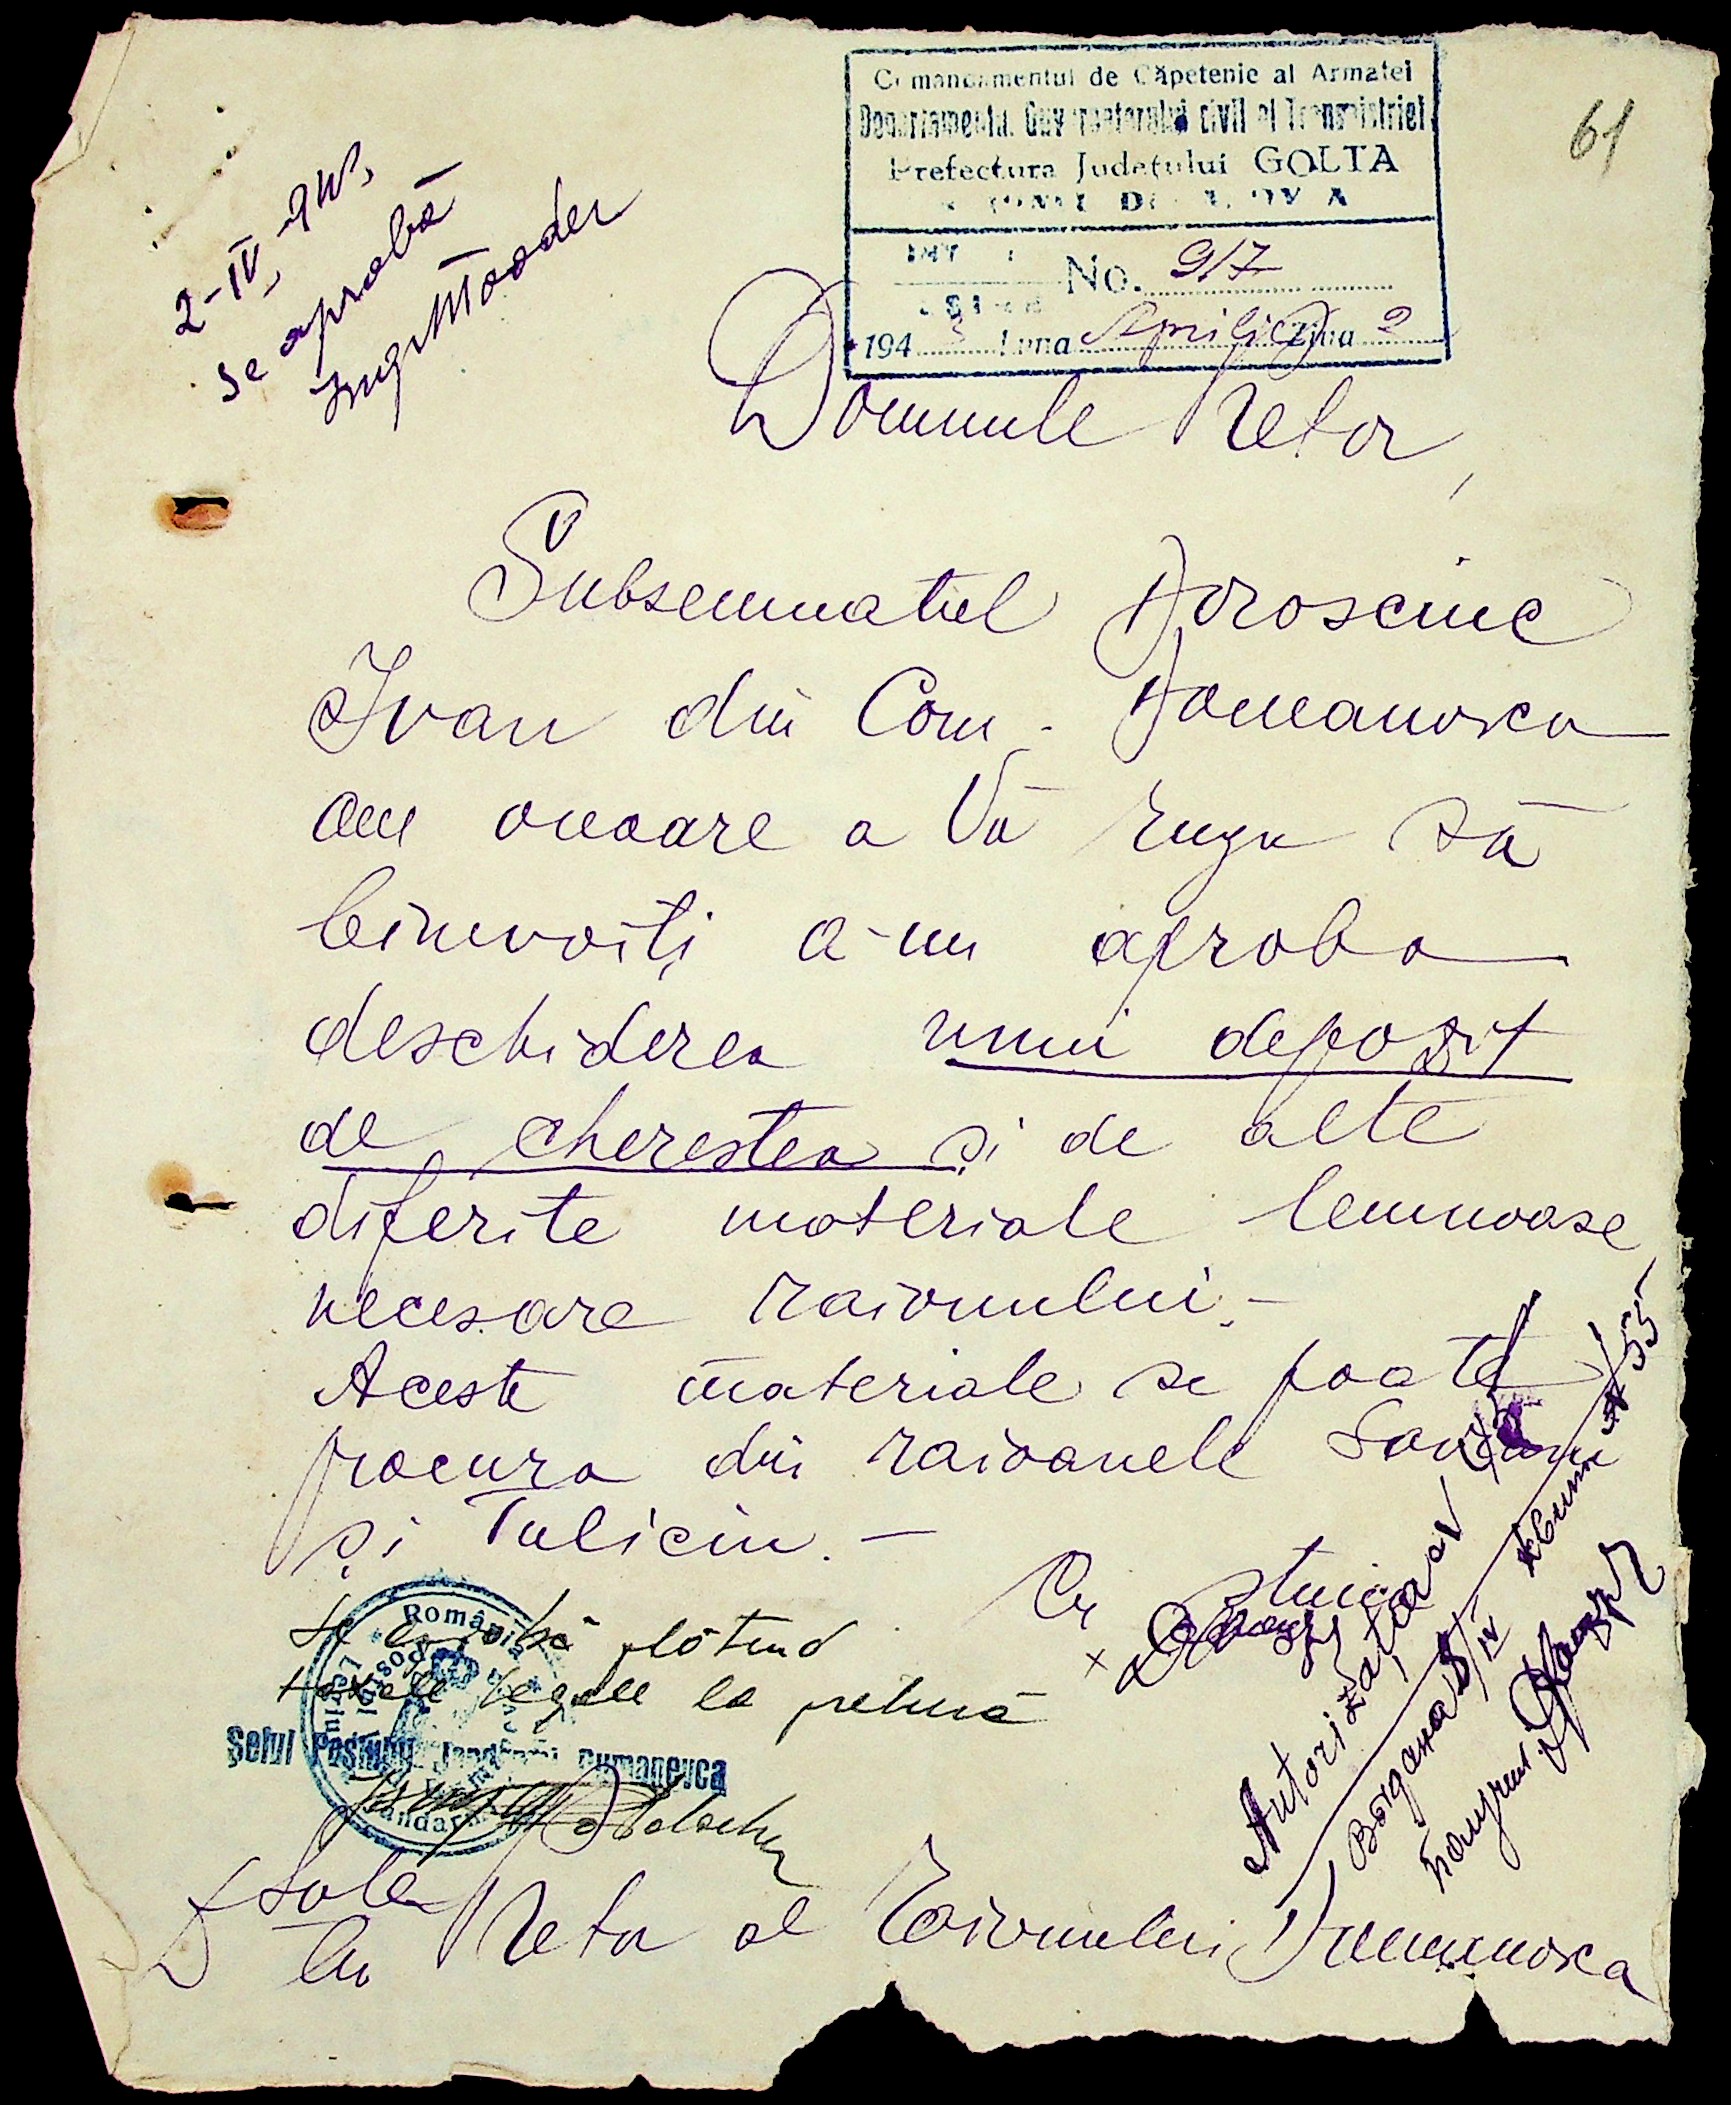 61
Comandamentul de Căpetenie al Armatei
Departamentul Guvernatorului civil al Transnistriei
Prefectura Județului GOLTA
No. 917
1943 Luna Aprilie Ziua 2
2-IV-943,
Se aprobă
Domnule Pretor,
Subsemnatul Dorosciuc
Ivan din Com. Domanovca
am onoare a Vă ruga să
binevoiți a-mi aproba
deschiderea unui depozit
de cherestea și de alte
diferite materiale lemnoase
necesare raionului.-
Aceste materiale se poate
procura din raioanele Savrani
și Tulicin.-
Cu stimă
Se aprobă plătind
taxele legale la pretură
România
Șeful Postului Jandarmi Dumanevca
Autorizația
D Sale
Lui Pretor al Raionului Dumanovca